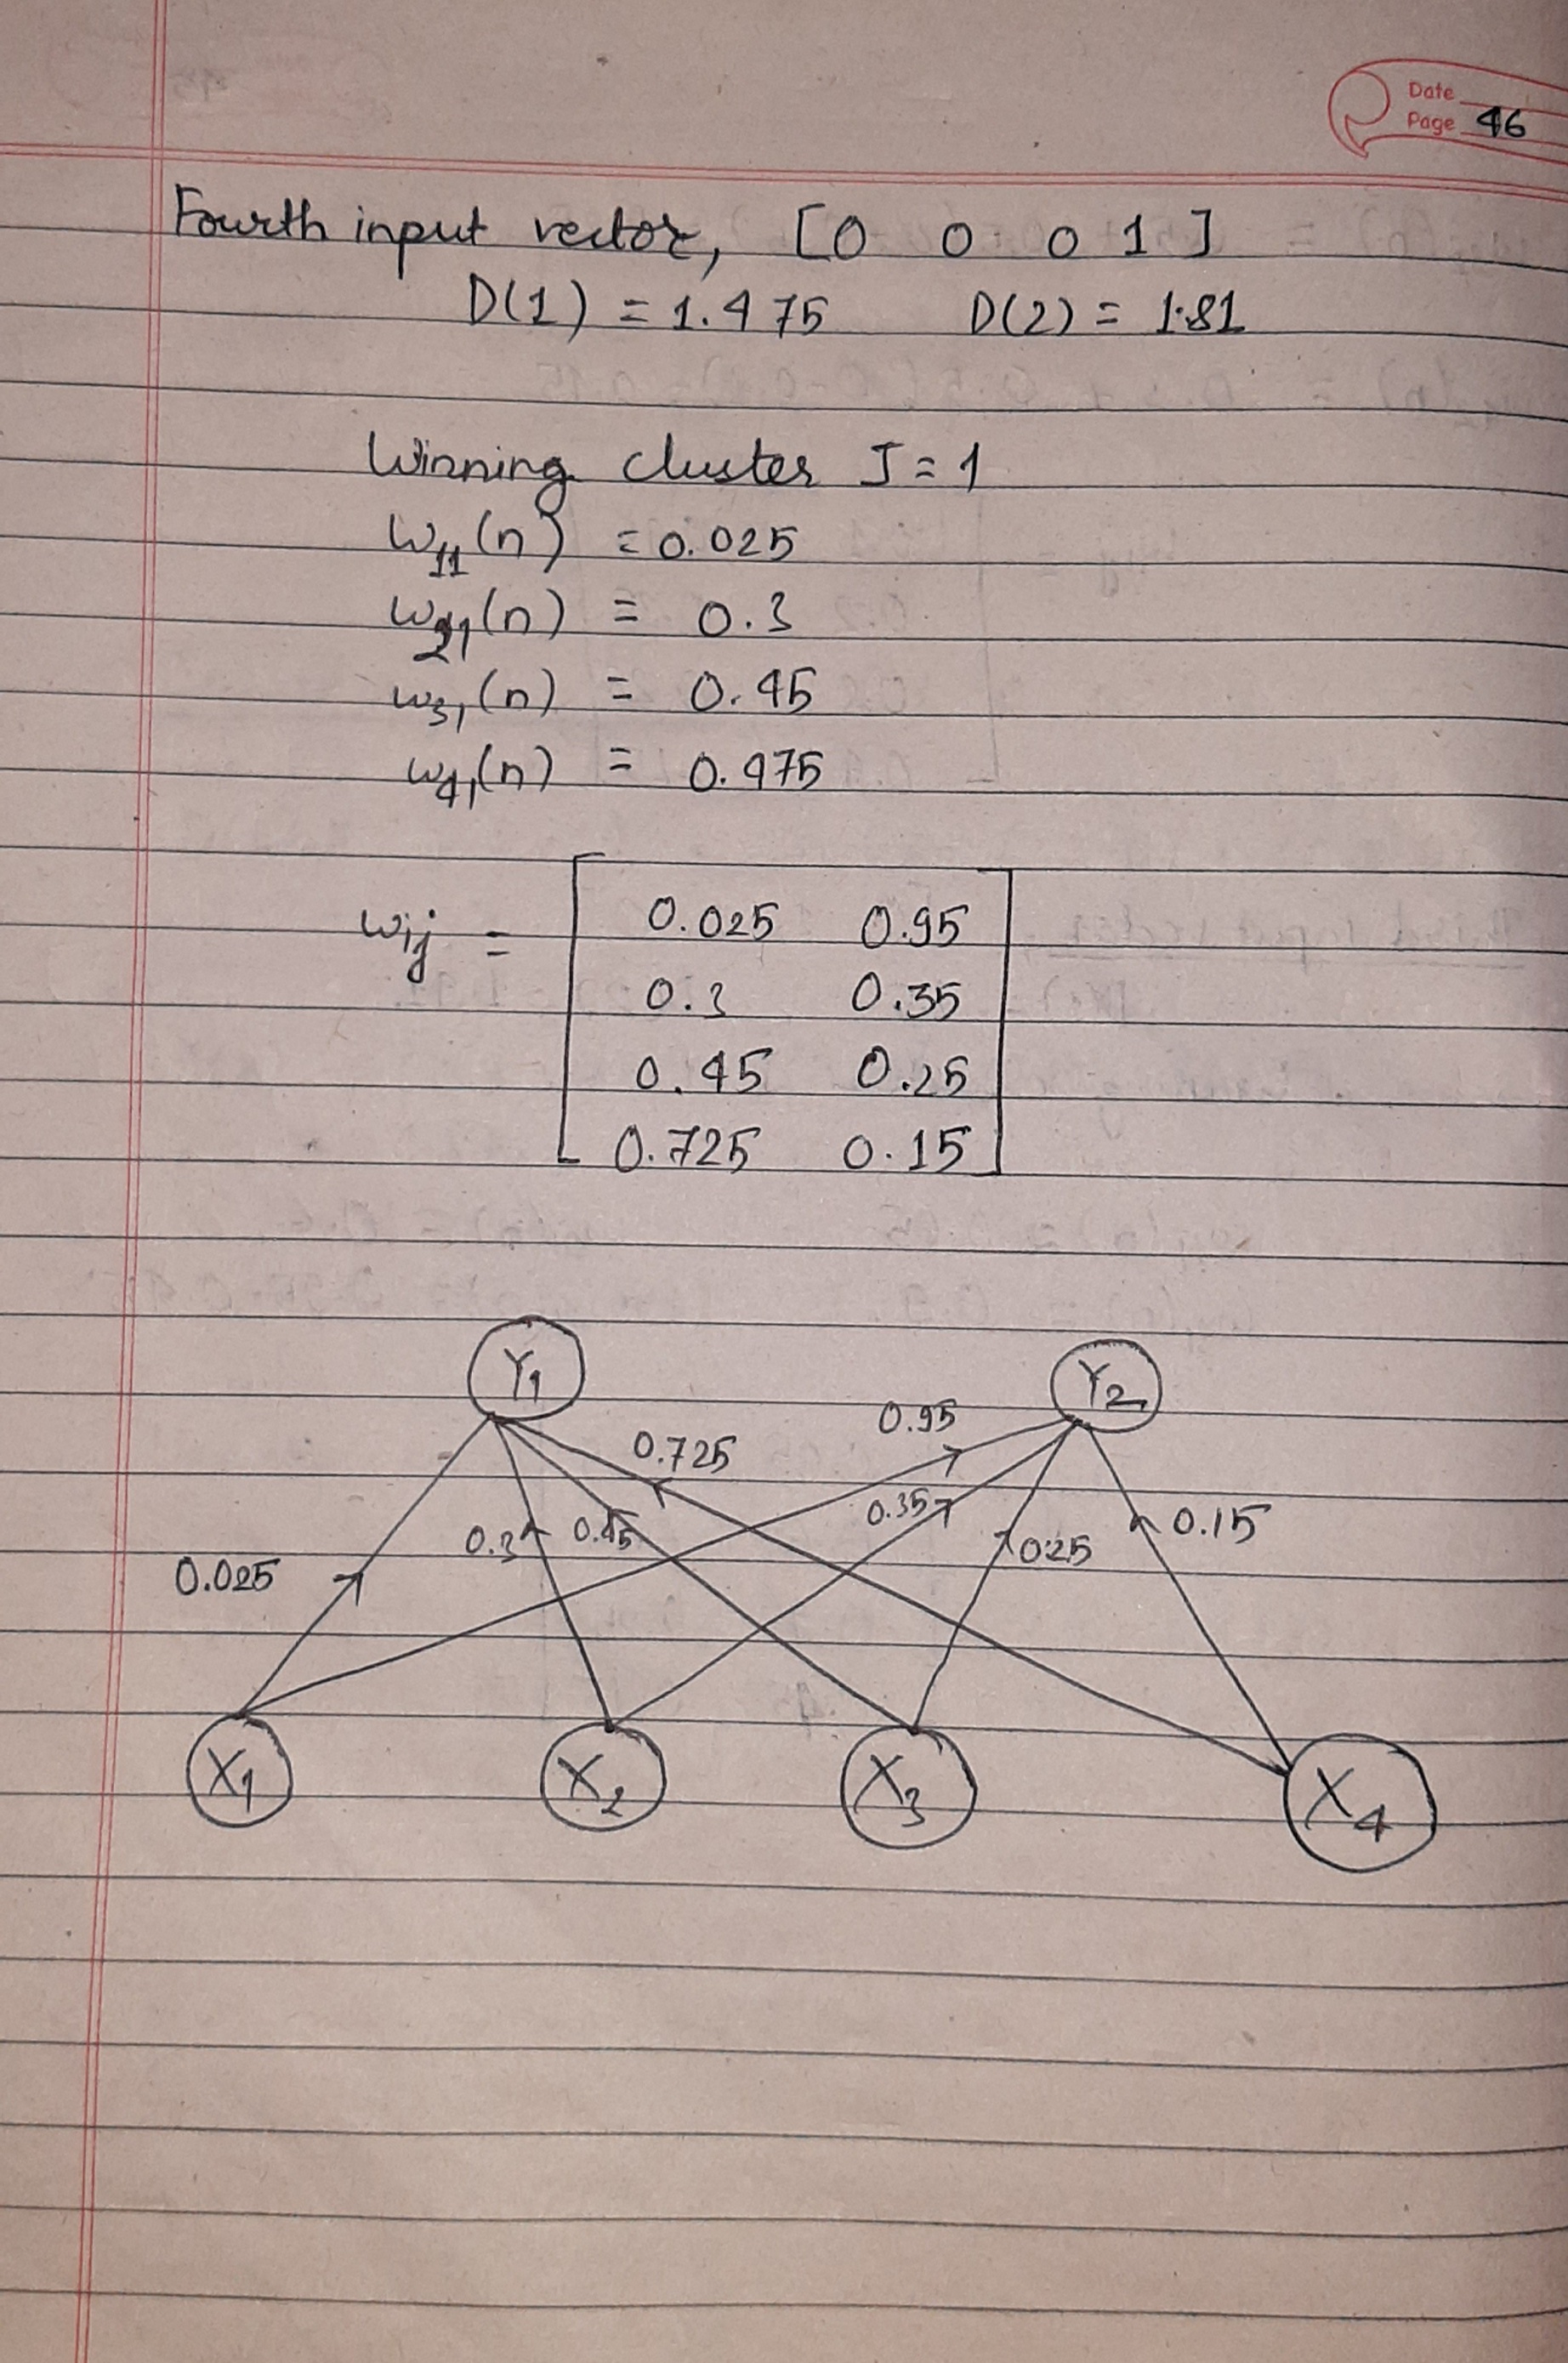 Date
Page 46
Fourth input vector, [0 0 0 1]
D(1) = 1.475 D(2) = 1.81
Winning cluster J = 1
w11(n) = 0.025
w21(n) = 0.3
w31(n) = 0.45
w41(n) = 0.475
wij =
0.025 0.95
0.3 0.35
0.45 0.25
0.725 0.15
Y1 Y2
0.725 0.95
0.025 0.3 0.45 0.35 0.25 0.15
X1 X2 X3 X4